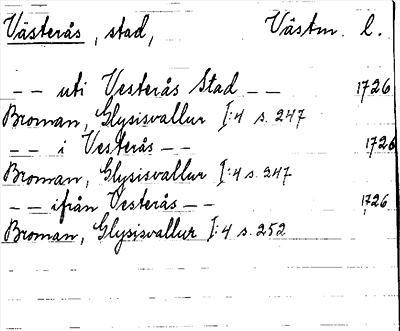 Västerås, stad, Västm. l.
-- uti Vesterås Stad -- 1726
Broman, Glysisvallur I:4 s. 247
-- i Vesterås -- 1726
Broman, Glysisvallur I:4 s. 247
-- ifrån Vesterås -- 1726
Broman, Glysisvallur I:4 s. 252